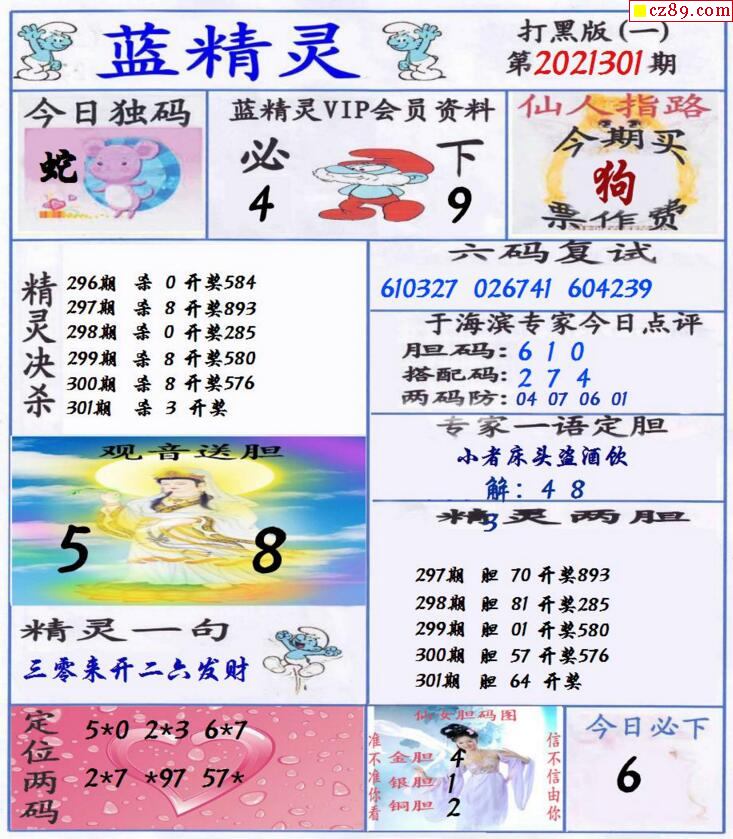 cz89.com
蓝精灵
打黑版(一)
第2021301期
今日独码
蛇
蓝精灵VIP会员资料
必 下
4 9
仙人指路
今期买
狗
票作费
精灵决杀
296期 杀 0 开奖584
297期 杀 8 开奖893
298期 杀 0 开奖285
299期 杀 8 开奖580
300期 杀 8 开奖576
301期 杀 3 开奖
六码复试
610327 026741 604239
于海滨专家今日点评
胆码: 6 1 0
搭配码: 2 7 4
两码防: 04 07 06 01
专家一语定胆
小者床头盗酒饮
解: 4 8
3
观音送胆
5 8
精灵两胆
297期 胆 70 开奖893
298期 胆 81 开奖285
299期 胆 01 开奖580
300期 胆 57 开奖576
301期 胆 64 开奖
精灵一句
三零来开二六发财
定位两码
5*0 2*3 6*7
2*7 *97 57*
仙女胆码图
准不准你看
金胆 4
银胆 1
铜胆 2
信不信由你
今日必下
6